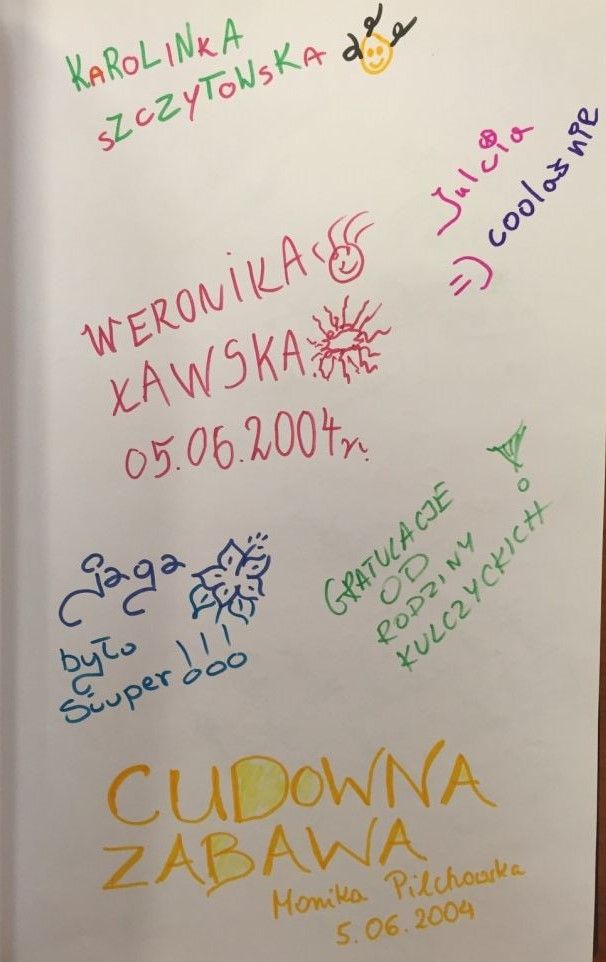 KAROLINKA
SZCZYTOWSKA
Julcia
=) coolaśnie
WERONIKA
ŁAWSKA
05.06.2004r.
GRATULACJE
OD
RODZINY
KULCZYCKICH!
jaga
było
Siuper!!!
CUDOWNA
ZABAWA
Monika Pilchowska
5.06.2004